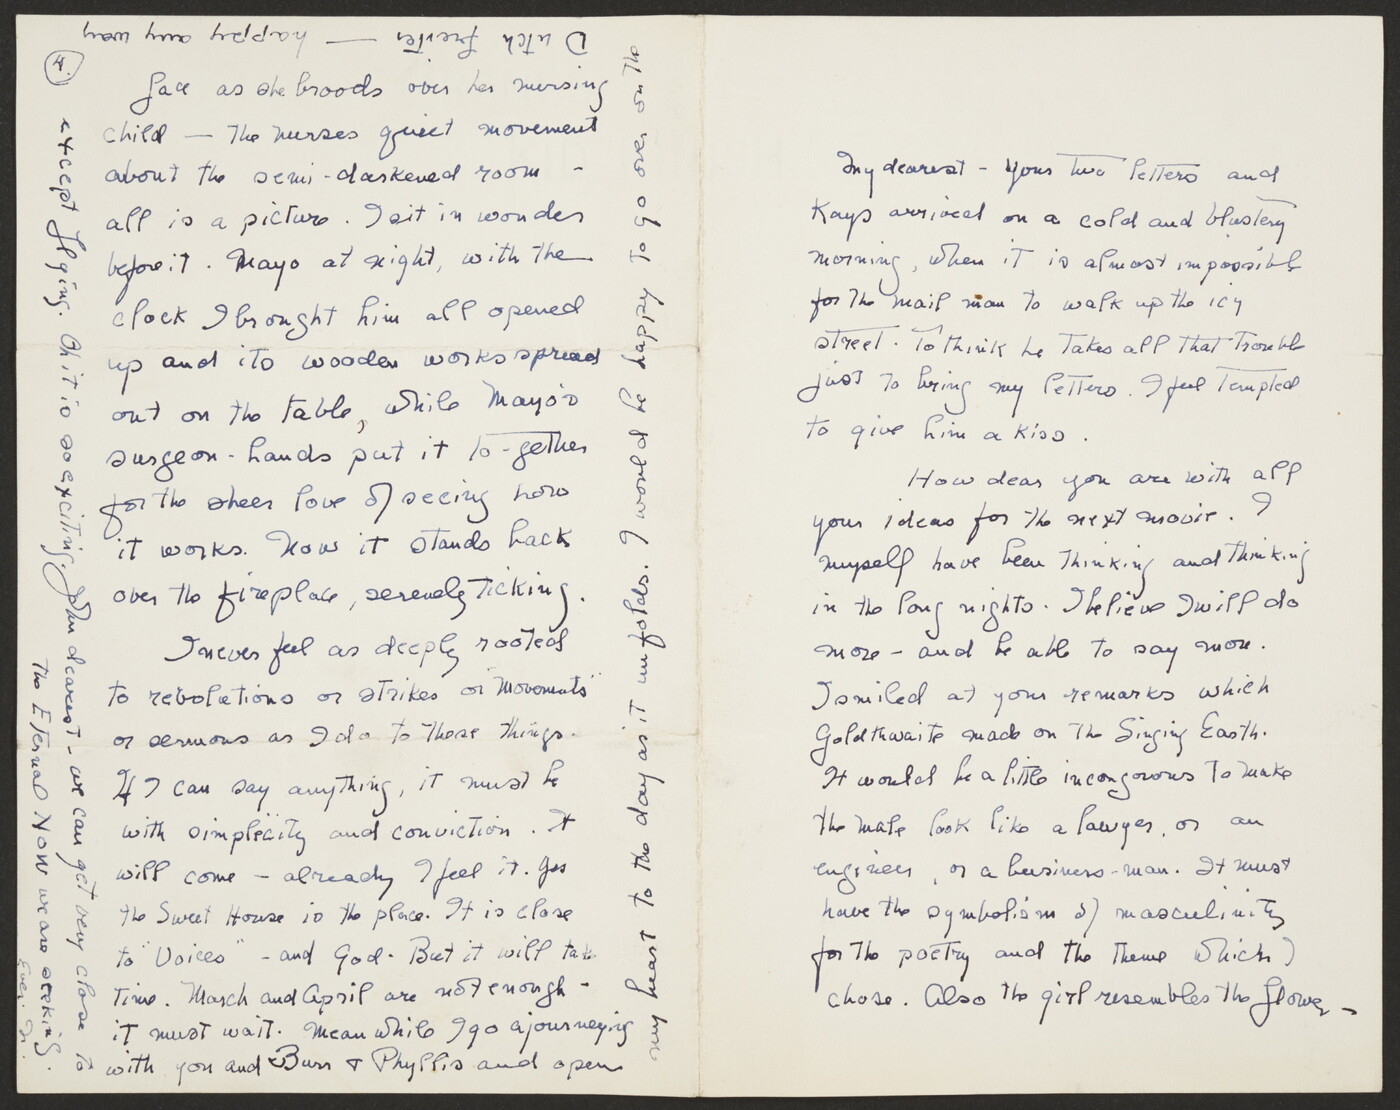 My dearest - Your two letters and
Kays arrived on a cold and blustery
morning, when it is almost impossible
for the mail man to walk up the icy
street. To think he takes all that trouble
just to bring my letters. I feel tempted
to give him a kiss.
How dear you are with all
your ideas for the next movie. I
myself have been thinking and thinking
in the long nights. I believe I will do
more - and be able to say more.
I smiled at your remarks which
Goldthwaite made on the Singing Earth.
It would be a little incongorous to make
the male look like a lawyer, or an
engineer, or a business-man. It must
have the symbolism of masculinity
for the poetry and the theme which I
chose. Also the girl resembles the flower -
4.
face as she broods over her nursing
child — the nurses quiet movement
about the semi-darkened room -
all is a picture. I sit in wonder
before it. Mayo at night, with the
clock I brought him all opened
up and its wooden works spread
out on the table, while Mayo's
surgeon-hands put it to-gether
for the sheer love of seeing how
it works. Now it stands back
over the fireplace, serenely ticking.
I never feel as deeply rooted
to revolutions or strikes or "Movements"
or sermons as I do to these things.
If I can say anything, it must be
with simplicity and conviction. It
will come - already I feel it. Yes
the Sweet House is the place. It is close
to "Voices" - and God. But it will take
time. March and April are not enough -
it must wait. Meanwhile I go ajourneying
with you and Burr & Phyllis and open
my heart to the day as it unfolds. I would be happy to go over on the
Dutch freiter — happy any way
except flying. Oh it is so exciting. John dearest - we can get very close to
the Eternal Now we are seeking.
Ever. N.